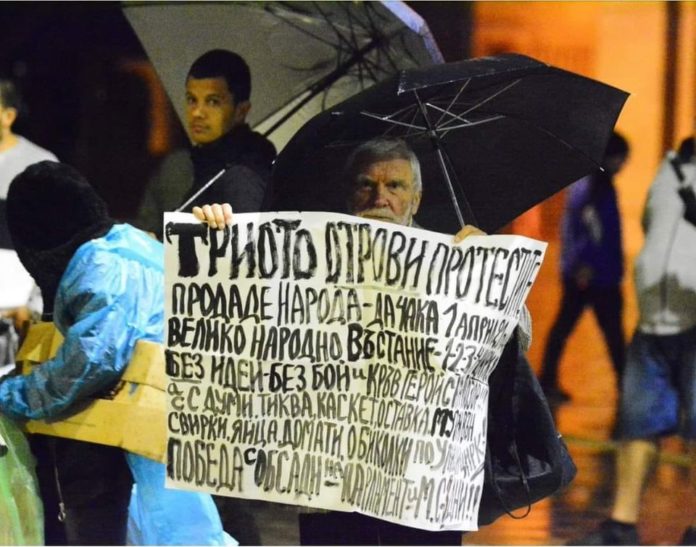 ТРИОТО ОТРОВИ ПРОТЕСТЕ
ПРОДАДЕ НАРОДА-ДА ЧАКА 1 АПРИЛ
ВЕЛИКО НАРОДНО ВЪСТАНИЕ-
БЕЗ ИДЕИ-БЕЗ БОЙ И КРЪВ
С ДУМИ, ТИКВА, КАСКЕТ ОСТАВКА
СВИРКИ, ЯЙЦА, ДОМАТИ, ОБИКОЛКИ ПО
ПОБЕДА С ОБСАДИ-НА ПАРЛАМЕНТ И М.